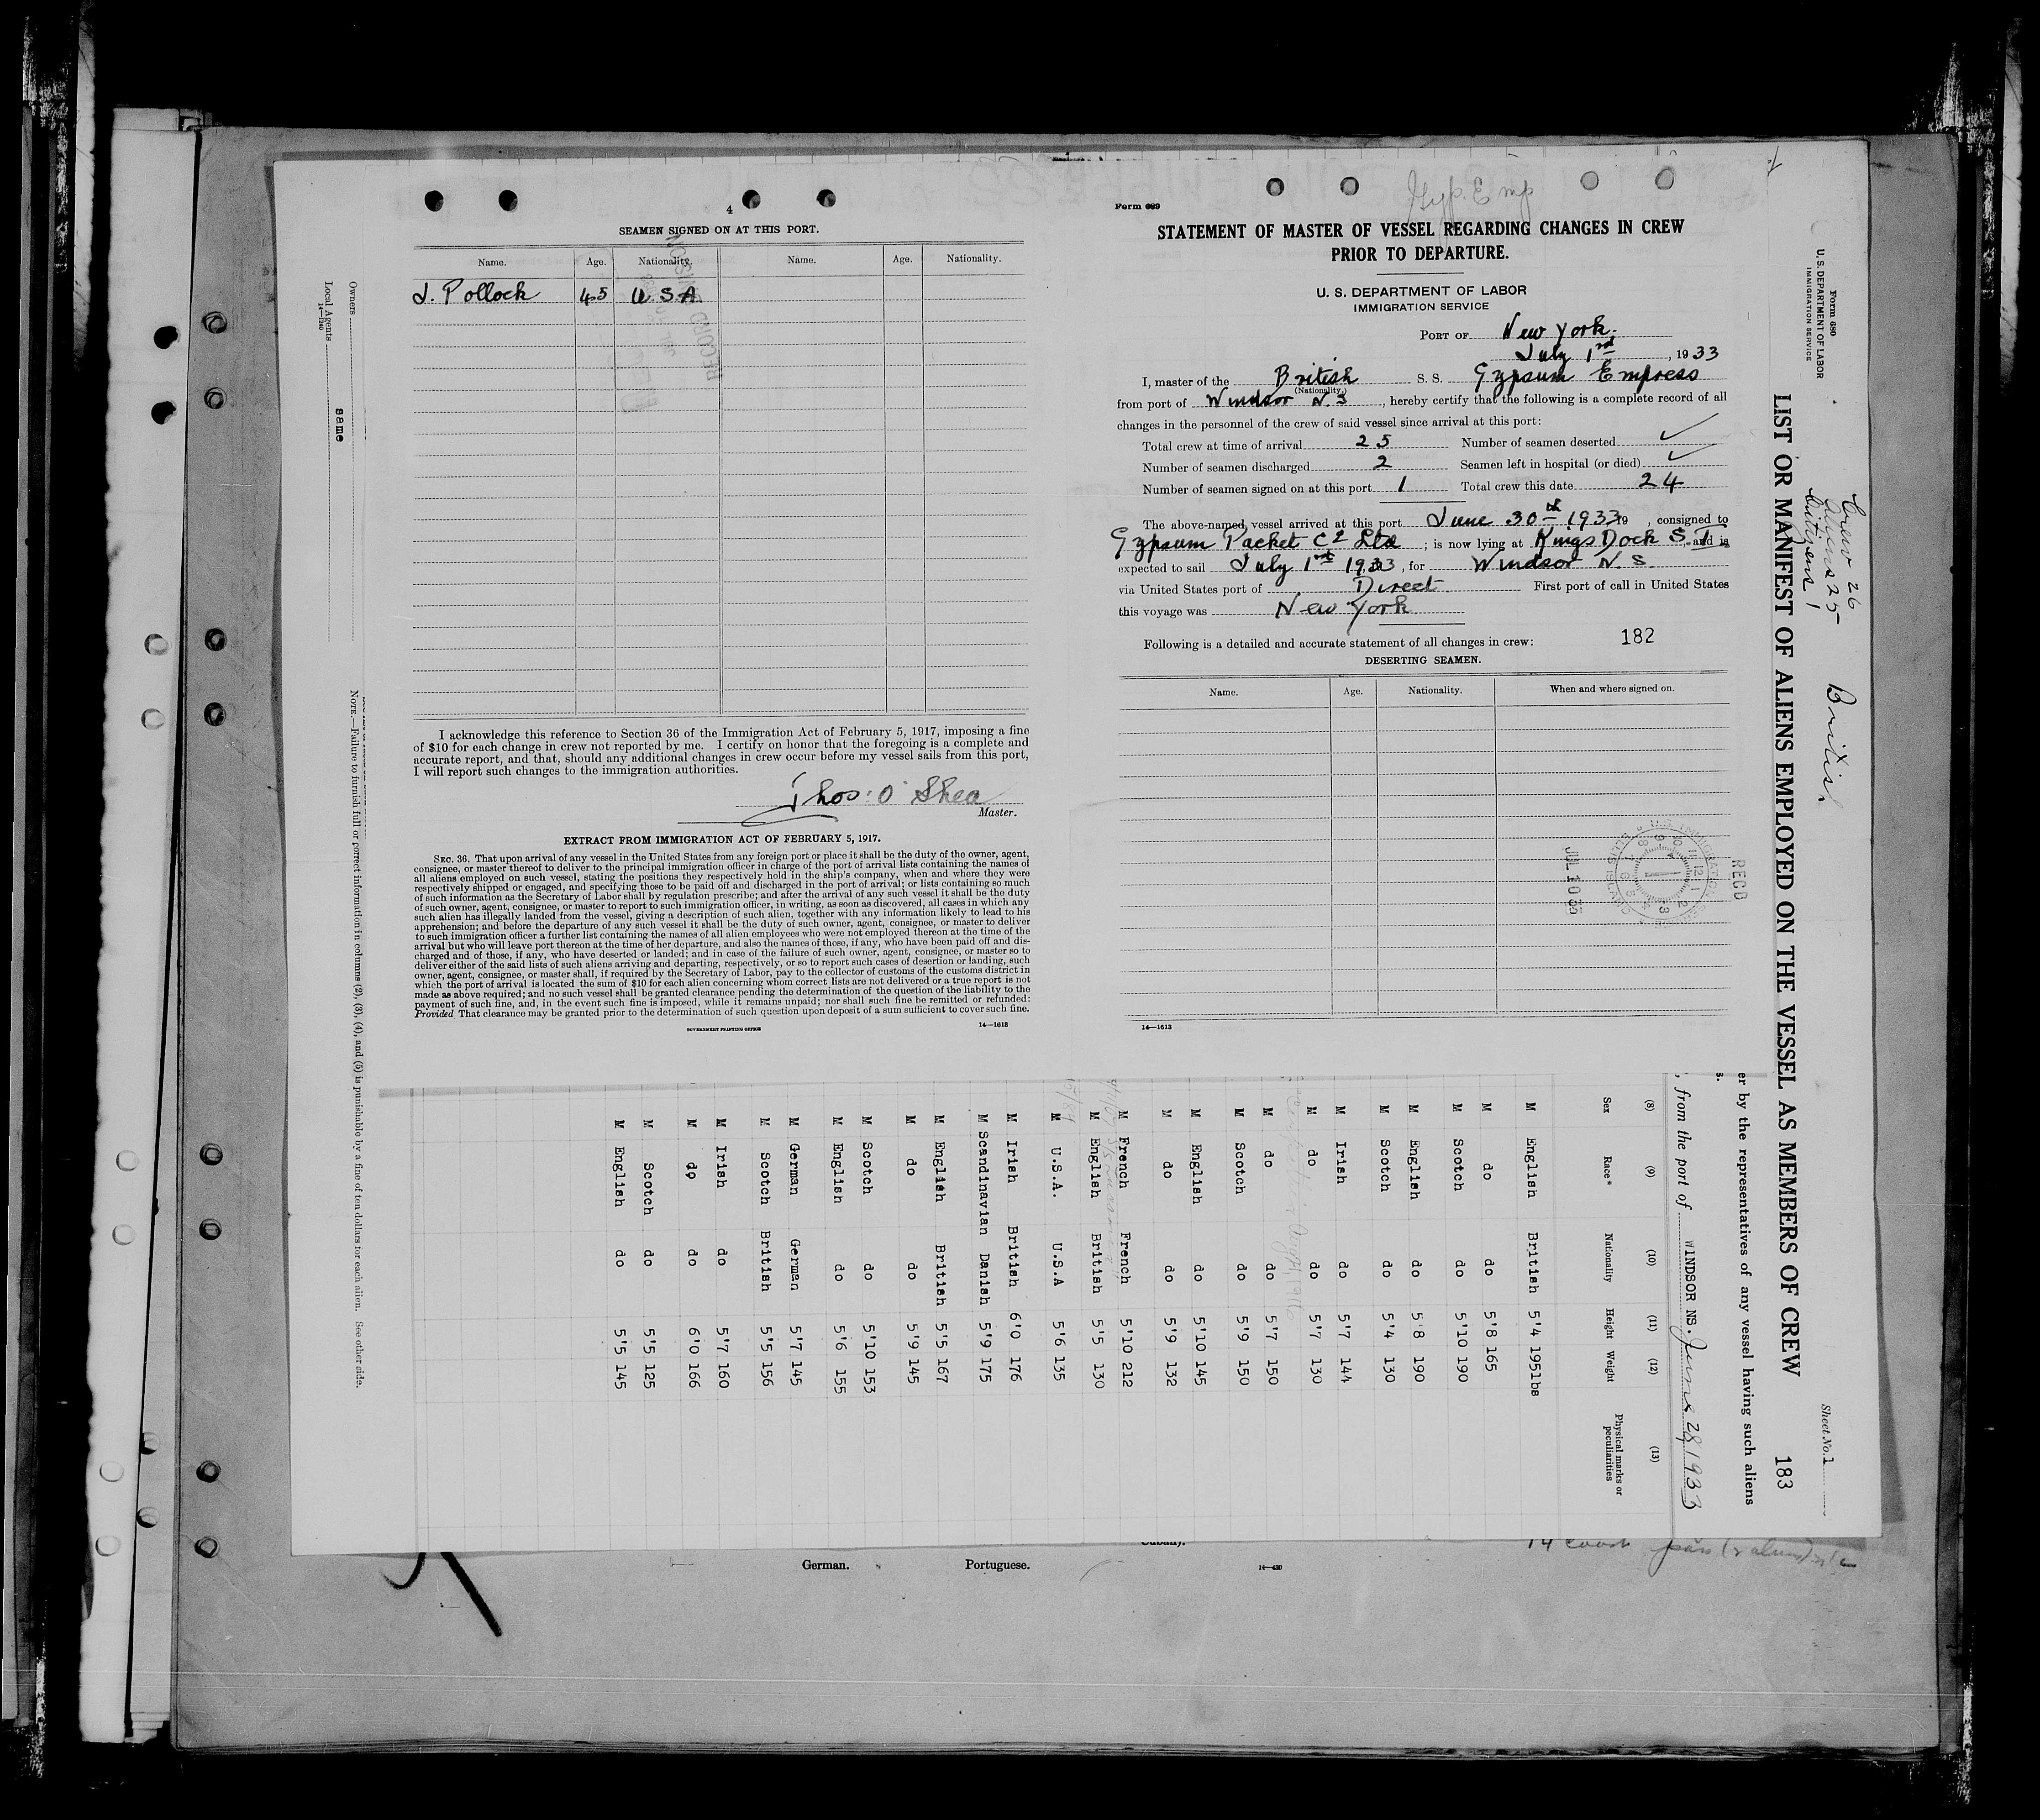 4
SEAMEN SIGNED ON AT THIS PORT.
Name. Age. Nationality. Name. Age. Nationality.
J. Pollock 45 U.S.A.
I acknowledge this reference to Section 36 of the Immigration Act of February 5, 1917, imposing a fine
of $10 for each change in crew not reported by me. I certify on honor that the foregoing is a complete and
accurate report, and that, should any additional changes in crew occur before my vessel sails from this port,
I will report such changes to the immigration authorities.
Thos: O'Shea
Master.
EXTRACT FROM IMMIGRATION ACT OF FEBRUARY 5, 1917.
SEC. 36. That upon arrival of any vessel in the United States from any foreign port or place it shall be the duty of the owner, agent,
consignee, or master thereof to deliver to the principal immigration officer in charge of the port of arrival lists containing the names of
all aliens employed on such vessel, stating the positions they respectively hold in the ship's company, when and where they were
respectively shipped or engaged, and specifying those to be paid off and discharged in the port of arrival; or lists containing so much
of such information as the Secretary of Labor shall by regulation prescribe; and after the arrival of any such vessel it shall be the duty
of such owner, agent, consignee, or master to report to such immigration officer, in writing, as soon as discovered, all cases in which any
such alien has illegally landed from the vessel, giving a description of such alien, together with any information likely to lead to his
apprehension; and before the departure of any such vessel it shall be the duty of such owner, agent, consignee, or master to deliver
to such immigration officer a further list containing the names of all alien employees who were not employed thereon at the time of the
arrival but who will leave port thereon at the time of her departure, and also the names of those, if any, who have been paid off and dis-
charged and of those, if any, who have deserted or landed; and in case of the failure of such owner, agent, consignee, or master so to
deliver either of the said lists of such aliens arriving and departing, respectively, or so to report such cases of desertion or landing, such
owner, agent, consignee, or master shall, if required by the Secretary of Labor, pay to the collector of customs of the customs district in
which the port of arrival is located the sum of $10 for each alien concerning whom correct lists are not delivered or a true report is not
made as above required; and no such vessel shall be granted clearance pending the determination of the question of the liability to the
payment of such fine, and, in the event such fine is imposed, while it remains unpaid; nor shall such fine be remitted or refunded:
Provided, That clearance may be granted prior to the determination of such question upon deposit of a sum sufficient to cover such fine.
GOVERNMENT PRINTING OFFICE 14—1613
Gyp. Emp
Form 689
STATEMENT OF MASTER OF VESSEL REGARDING CHANGES IN CREW
PRIOR TO DEPARTURE.
U. S. DEPARTMENT OF LABOR
IMMIGRATION SERVICE
PORT OF New York.
July 1st, 1933
I, master of the British S. S. Gypsum Empress
(Nationality.)
from port of Windsor N.S, hereby certify that the following is a complete record of all
changes in the personnel of the crew of said vessel since arrival at this port:
Total crew at time of arrival 25 Number of seamen deserted ✓
Number of seamen discharged 2 Seamen left in hospital (or died) ✓
Number of seamen signed on at this port 1 Total crew this date 24
The above-named vessel arrived at this port June 30th 1933 19 , consigned to
Gypsum Packet Co Ltd ; is now lying at Kings Dock S.I., and is
expected to sail July 1st 1933, for Windsor N.S.
via United States port of Direct First port of call in United States
this voyage was New York
Following is a detailed and accurate statement of all changes in crew: 182
DESERTING SEAMEN.
Name. Age. Nationality. When and where signed on.
RECD
14—1613
Form 680
U. S. DEPARTMENT OF LABOR
IMMIGRATION SERVICE
Crew 26
Aliens 25
Citizens 1
British
Sheet No. 1
LIST OR MANIFEST OF ALIENS EMPLOYED ON THE VESSEL AS MEMBERS OF CREW 183
er by the representatives of any vessel having such aliens
s.
, from the port of WINDSOR NS. June 28, 1933
(8) (9) (10) (11) (12) (13)
Sex Race* Nationality Height Weight Physical marks or peculiarities
M English British 5'4 195lbs
M do do 5'8 165
M Scotch do 5'10 190
M English do 5'8 190
M Scotch do 5'4 130
M Irish do 5'7 144
M do do 5'7 130
M do do 5'7 150
M Scotch do 5'9 150
M English do 5'10 145
M do do 5'9 132
M French French 5'10 212
M English British 5'5 130
M U.S.A. U.S.A 5'6 135
M Irish British 6'0 176
M Scandinavian Danish 5'9 175
M English British 5'5 167
M do do 5'9 145
M Scotch do 5'10 153
M English do 5'6 155
M German German 5'7 145
M Scotch British 5'5 156
M Irish do 5'7 160
M do do 6'0 166
M Scotch do 5'5 125
M English do 5'5 145
NOTE.—Failure to furnish full or correct information in columns (2), (3), (4), and (5) is punishable by a fine of ten dollars for each alien. See other side.
Owners
Local Agents same
14—1240
Cuban).
German. Portuguese.